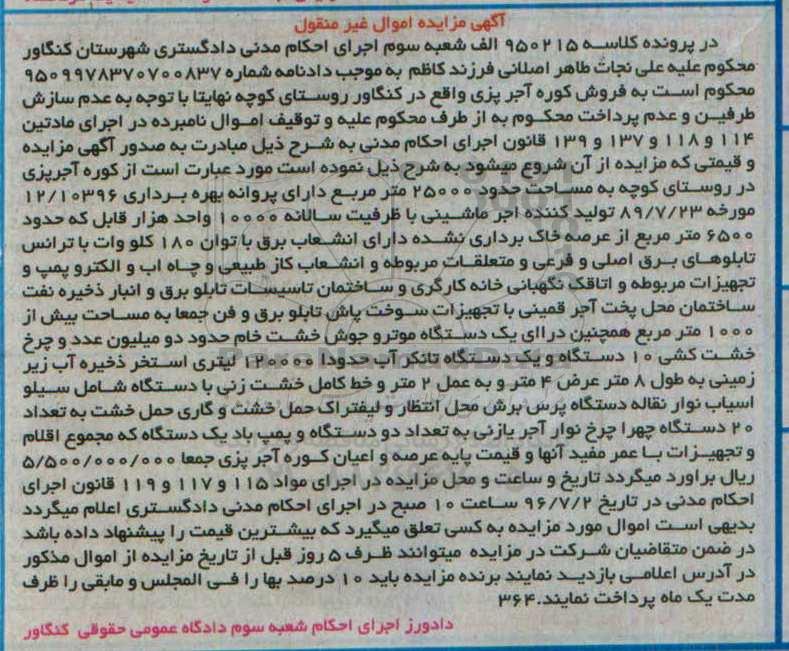 آگهی مزایده اموال غیر منقول
در پرونده کلاسه ۹۵۰۲۱۵ الف شعبه سوم اجرای احکام مدنی دادگستری شهرستان کنگاور
محکوم علیه علی نجات طاهر اصلانی فرزند کاظم به موجب دادنامه شماره ۹۵۰۹۹۷۸۳۷۰۷۰۰۸۳۷
محکوم است به فروش کوره آجر پزی واقع در کنگاور روستای کوچه نهایتا با توجه به عدم سازش
طرفین و عدم پرداخت محکوم به از طرف محکوم علیه و توقیف اموال نامبرده در اجرای مادتین
۱۱۴ و ۱۱۸ و ۱۳۷ و ۱۳۹ قانون اجرای احکام مدنی به شرح ذیل مبادرت به صدور آگهی مزایده
و قیمتی که مزایده از آن شروع میشود به شرح ذیل نموده است مورد عبارت است از کوره آجرپزی
در روستای کوچه به مساحت حدود ۲۵۰۰۰ متر مربع دارای پروانه بهره برداری ۱۲/۱۰۳۹۶
مورخه ۸۹/۷/۲۳ تولید کننده اجر ماشینی با ظرفیت سالانه ۱۰۰۰۰ واحد هزار قابل که حدود
۶۵۰۰ متر مربع از عرصه خاک برداری نشده دارای انشعاب برق با توان ۱۸۰ کلو وات با ترانس
تابلوهای برق اصلی و فرعی و متعلقات مربوطه و انشعاب کاز طبیعی و چاه اب و الکترو پمپ و
تجهیزات مربوطه و اتاقک نگهبانی خانه کارگری و ساختمان تاسیسات تابلو برق و انبار ذخیره نفت
ساختمان محل پخت آجر قمینی با تجهیزات سوخت پاش تابلو برق و فن جمعا به مساحت بیش از
۱۰۰۰ متر مربع همچنین درای یک دستگاه موترو جوش خشت خام حدود دو میلیون عدد و چرخ
خشت کشی ۱۰ دستگاه و یک دستگاه تانکر آب حدودا ۱۲۰۰۰۰ لیتری استخر ذخیره آب زیر
زمینی به طول ۸ متر عرض ۴ متر و به عمل ۲ متر و خط کامل خشت زنی با دستگاه شامل سیلو
اسیاب نوار نقاله دستگاه پرس برش محل انتظار و لیفتراک حمل خشت و گاری حمل خشت به تعداد
۲۰ دستگاه چهرا چرخ نوار آجر یازنی به تعداد دو دستگاه و پمپ باد یک دستگاه که مجموع اقلام
و تجهیزات با عمر مفید آنها و قیمت پایه عرصه و اعیان کوره آجر پزی جمعا ۵/۵۰۰/۰۰۰/۰۰۰
ریال براورد میگردد تاریخ و ساعت و محل مزایده در اجرای مواد ۱۱۵ و ۱۱۷ و ۱۱۹ قانون اجرای
احکام مدنی در تاریخ ۹۶/۷/۲ ساعت ۱۰ صبح در اجرای احکام مدنی دادگستری اعلام میگردد
بدیهی است اموال مورد مزایده به کسی تعلق میگیرد که بیشترین قیمت را پیشنهاد داده باشد
در ضمن متقاضیان شرکت در مزایده میتوانند ظرف ۵ روز قبل از تاریخ مزایده از اموال مذکور
در آدرس اعلامی بازدید نمایند برنده مزایده باید ۱۰ درصد بها را فی المجلس و مابقی را ظرف
مدت یک ماه پرداخت نمایند.۳۶۴
دادورز اجرای احکام شعبه سوم دادگاه عمومی حقوقی کنگاور